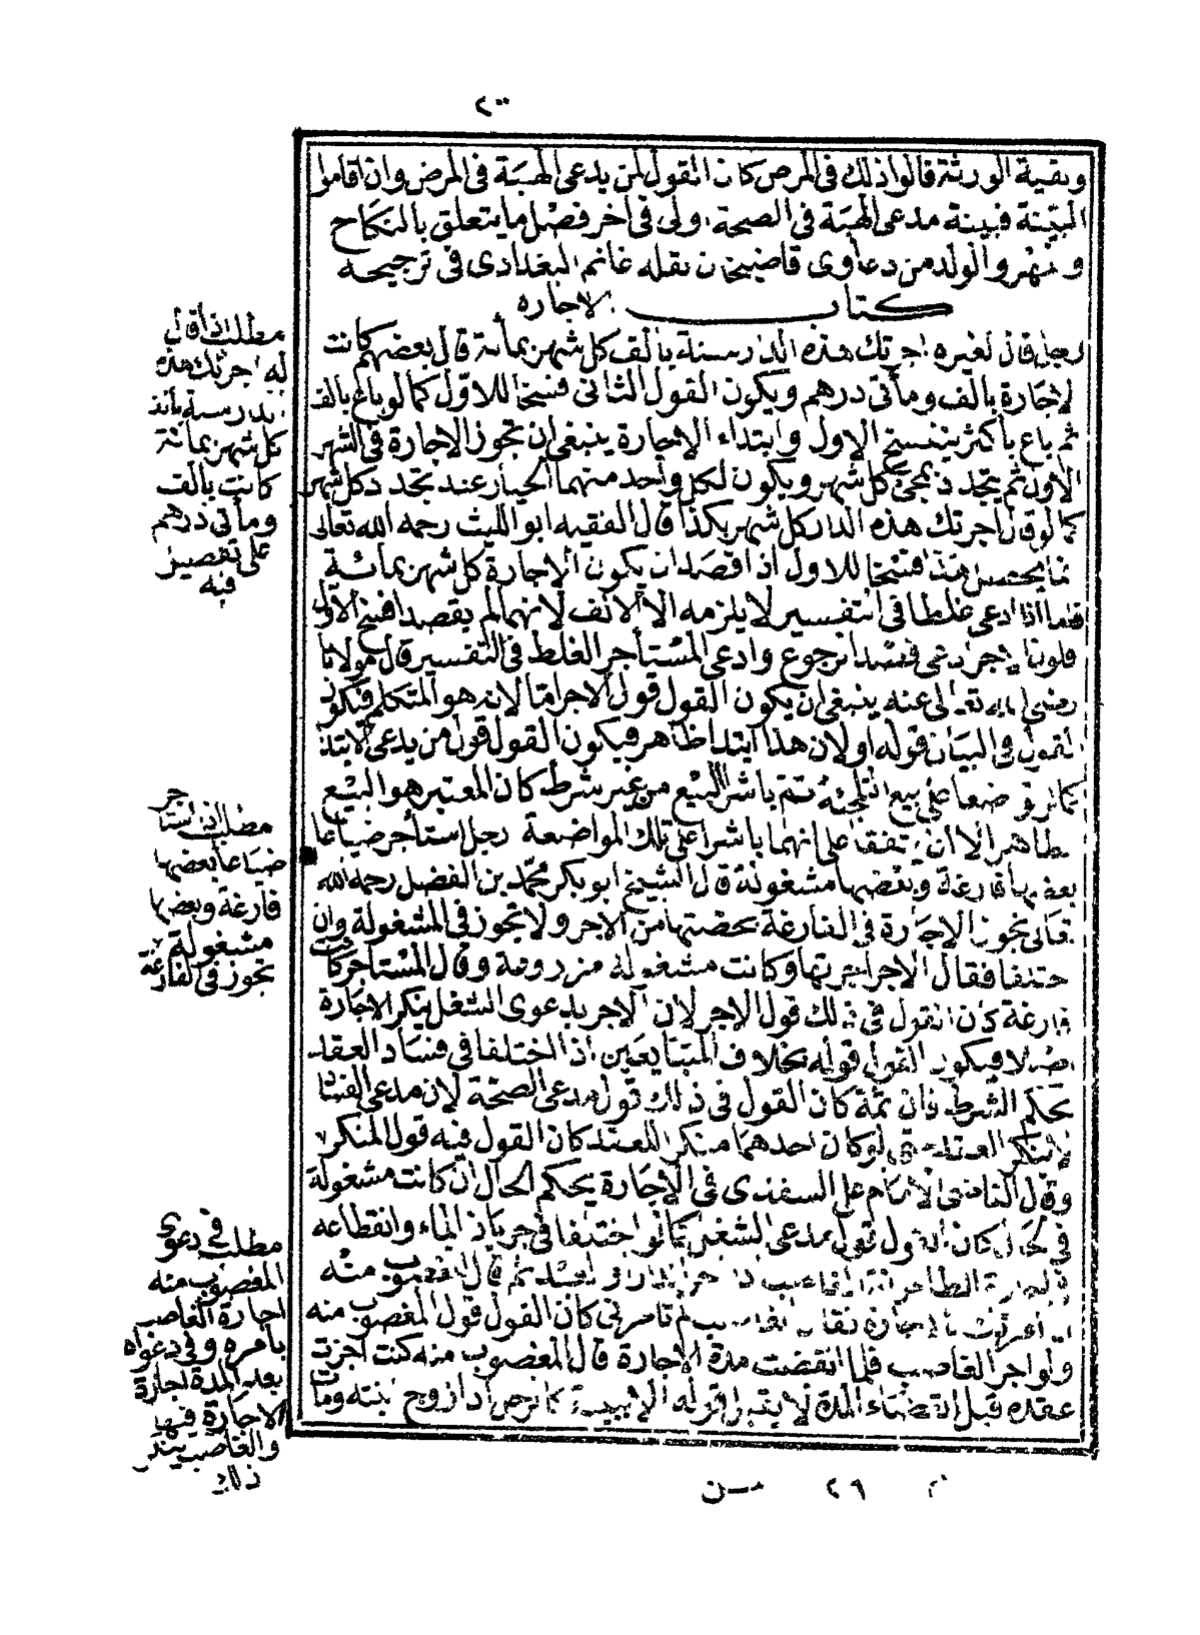 وبقية الورثة قالوا ذلك في المرض كان القول لمن يدعي الهبة في المرض وان اقاموا
البينة فبينة مدعي الهبة في الصحة اولى في اخر فصل ما يتعلق بالنكاح
والمهر والولد من دعاوى قاضيخان نقله غانم البغدادي في ترجيحه
كتاب الاجاره
رجل قال لغيره اجرتك هذه الدار سنة بالف كل شهر بمأة قال بعضهم كانت
الاجارة بالف ومأتي درهم ويكون القول الثاني فسخا للاول كما لو باع بالف
ثم باع بأكثر ينفسخ الاول وابتداء الاجارة ينبغي ان تجوز الاجارة في الشهر
الاول ثم يتجدد بمجئ كل شهر ويكون لكل واحد منهما الخيار عند تجدد كل شهر
كما لو قال اجرتك هذه الدار كل شهر بكذا قال الفقيه ابو الليث رحمه الله تعالى
انما يحتمل هذا فسخا للاول اذا قصد ان يكون الاجارة كل شهر بمائة
فاما اذا ادعى غلطا في التفسير لا يلزمه الا الالف لانهما لم يقصدا فسخ الاول
فلو ان الاجر ادعى قصد الرجوع وادعى المستأجر الغلط في التفسير قال مولانا
رضي الله تعالى عنه ينبغي ان يكون القول قول الاجر اما لانه هو المتكلم فيكون
القول في البيان قوله او لان هذا ابتدا ظاهر فيكون القول قول من يدعي الابتدا
كما لو تواضعا على بيع التلجئة ثم باشر البيع من غير شرط كان المعتبر هو البيع
ظاهرا الا ان يتفقا على انهما باشرا على تلك المواضعة رجل استأجر ضياعا
بعضها فارغة وبعضها مشغولة قال الشيخ ابو بكر محمد بن الفضل رحمه الله
تعالى تجوز الاجارة في الفارغة بحصتها من الاجر ولا تجوز في المشغولة وان
اختلفا فقال الاجر اجرتها وكانت مشغولة مزروعة وقال المستأجر كانت
فارغة كان القول في ذلك قول الاجر لان الاجر بدعوى الشغل ينكر الاجارة
اصلا فيكون القول قوله بخلاف المتبايعين اذا اختلفا في فساد العقد
بحكم الشرط فان ثمة كان القول في ذلك قول مدعي الصحة لان مدعي الفساد
لا ينكر العقد حتى لو كان احدهما منكرا للعقد كان القول فيه قول المنكر
وقال القاضي الامام علي السغدي في الاجارة يحكم الحال ان كانت مشغولة
في الحال كان القول قول مدعي الشغل كما لو اختلفا في جريان الماء وانقطاعه
ثم قال المغصوب منه
امرتك بالاجارة فقال الغاصب لم تأمرني كان القول قول المغصوب منه
ولو اجر الغاصب فلما انقضت مدة الاجارة قال المغصوب منه كنت اجزت
عقده قبل انقضاء المدة لا يقبل قوله الا ببينة كالرجل اذا زوج ابنته ومات
مطلب اذا قال
له اجرتك هذه
الدار سنة بألف
كل شهر بمائة
كانت بالف
ومأتي درهم
على تفصيل
فيه
مطلب اذا استأجر
ضياعا بعضها
فارغة وبعضها
مشغولة
تجوز في الفارغة
مطلب في دعوى
المغصوب منه
اجارة الغاصب
بامره وفي دعواه
بعد المدة اجازة
الاجارة فيها
والغاصب ينكر
ذلك
٢٩